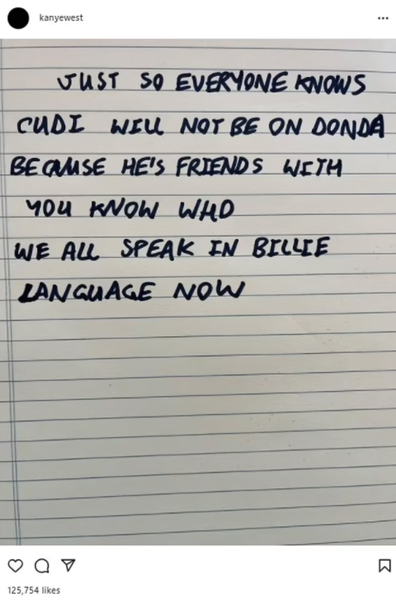 kanyewest
JUST SO EVERYONE KNOWS
CUDI WILL NOT BE ON DONDA
BECAUSE HE'S FRIENDS WITH
YOU KNOW WHO
WE ALL SPEAK IN BILLIE
LANGUAGE NOW
125,754 likes